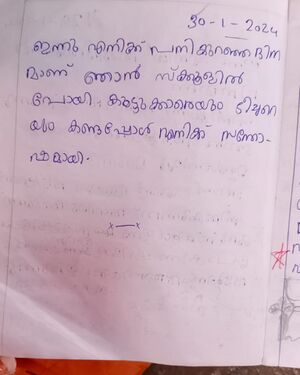 30-1-2024
ഇന്നു എനിക്ക് പനികുറഞ്ഞ ദിന
മാണ് ഞാൻ സ്ക്കൂളിൽ
പോയി. കൂട്ടുക്കാരെയും ടീച്ചറെ
യും കണ്ടപ്പോൾ എനിക്ക് സന്തോ-
ഷമായി.
x—x